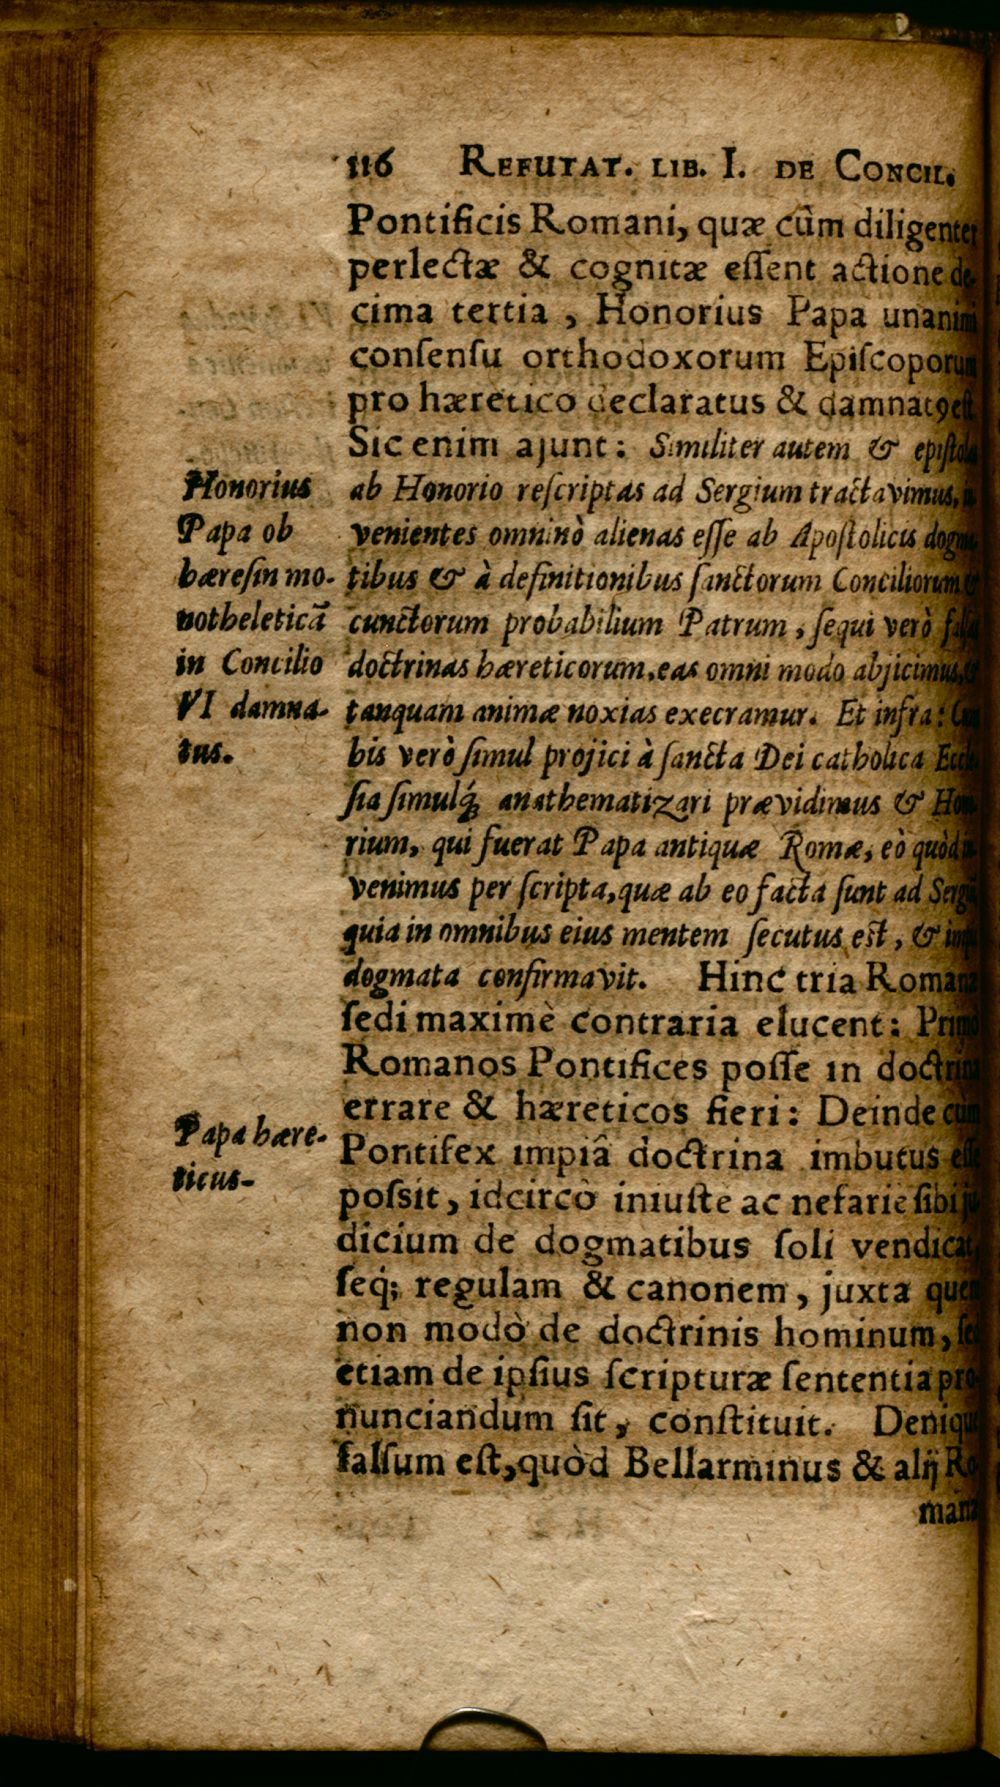 116 REFUTAT. LIB. I. DE CONCIL.
Pontificis Romani, quæ cùm diligenter
perlectæ & cognitæ eſſent actione de-
cima tertia, Honorius Papa unanimi
conſenſu orthodoxorum Epiſcoporum
pro hæretico declaratus & damnatꝰ eſt.
Sic enim ajunt: Similiter autem & epiſtolas
ab Honorio reſcriptas ad Sergium tractavimus, in
venientes omninò alienas eſſe ab Apoſtolicis dogma-
tibus & à definitionibus ſanctorum Conciliorum &
cunctorum probabilium Patrum, ſequi verò falſas
doctrinas hæreticorum, eas omni modo abjicimus, &
tanquam animæ noxias execramur. Et infra: Cum
bis verò ſimul projici à ſancta Dei catholica Eccle-
ſia ſimulq́; anathematizari prævidimus & Hono-
rium, qui fuerat Papa antiquæ Romæ, eò quòd in-
venimus per ſcripta, quæ ab eo facta ſunt ad Sergiũ
quia in omnibus eius mentem ſecutus eſt, & impia
dogmata confirmavit. Hinc tria Romanæ
ſedi maximè contraria elucent: Primò
Romanos Pontifices poſſe in doctrina
errare & hæreticos fieri: Deinde cùm
Pontifex impiâ doctrina imbutus eſſe
poſsit, idcircò iniuſte ac nefarie ſibi ju-
dicium de dogmatibus ſoli vendicat,
ſeq́; regulam & canonem, juxta quem
non modò de doctrinis hominum, ſed
etiam de ipſius ſcripturæ ſententia pro-
nunciandum ſit, conſtituit. Denique
falſum eſt, quòd Bellarminus & alij Ro-
mana
Honorius
Papa ob
hæreſin mo-
notheleticã
in Concilio
VI damna-
tus.
Papa hære-
ticus.